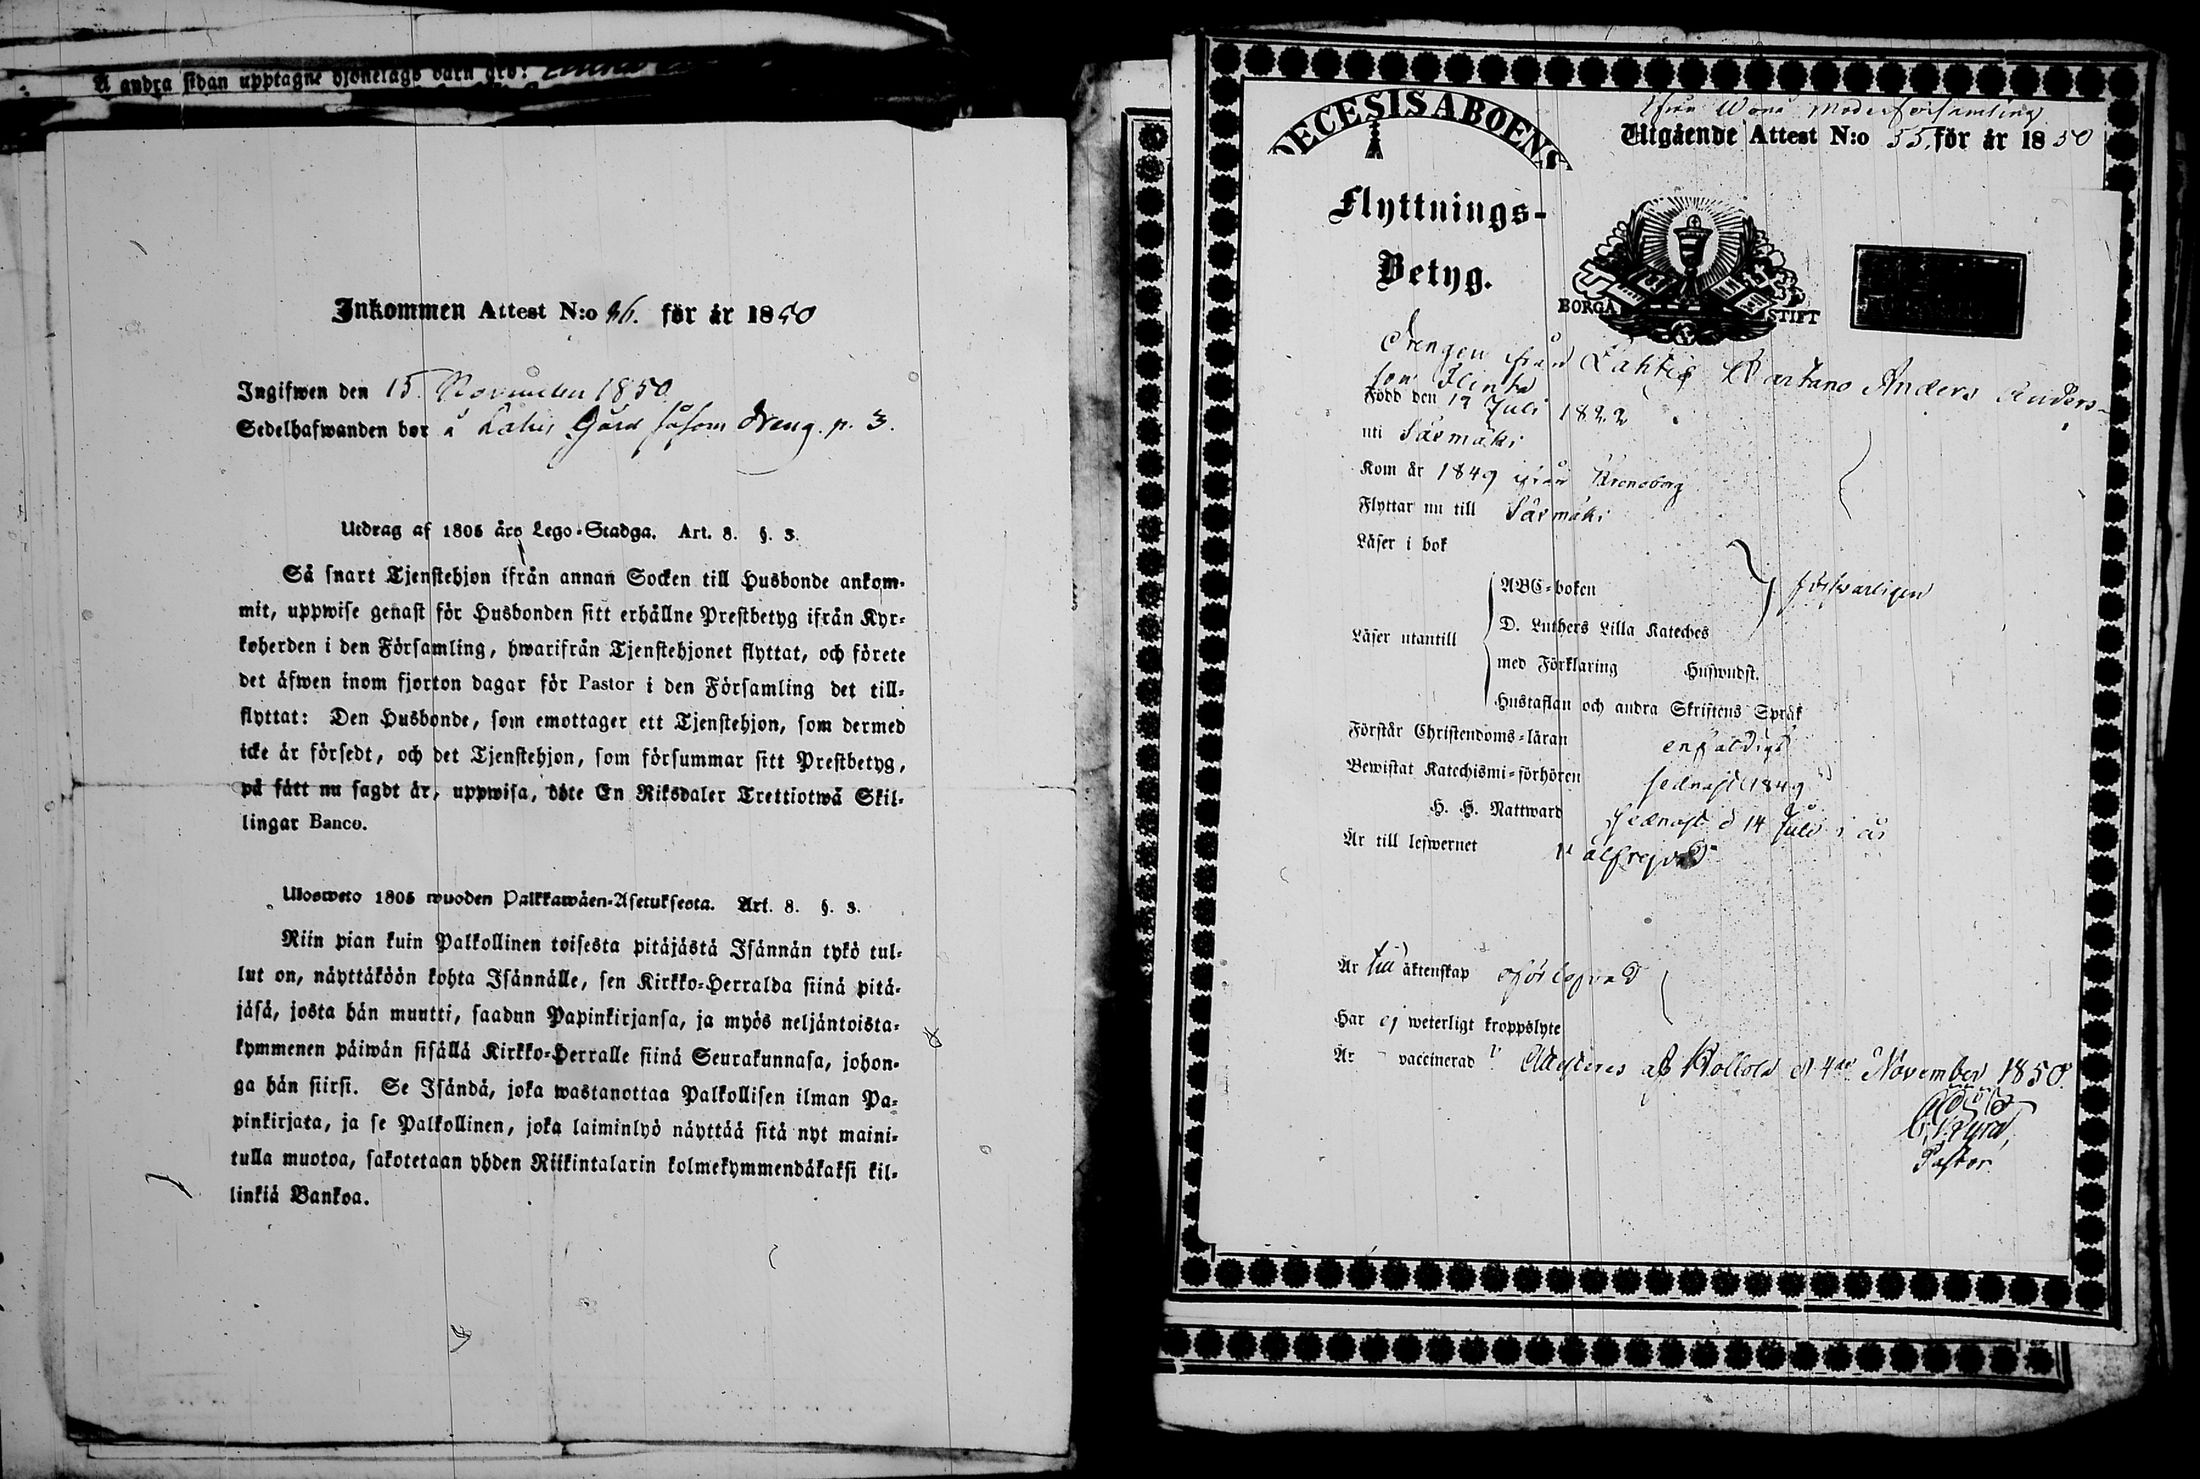 Å andra sidan upptagne hjonelags barn äro:
Inkommen Attest N:o 86. för år 1850
Ingifwen den 15 November 1850.
Sedelhafwanden bor å Lahis Gård såsom dreng. p. 3.
Utdrag af 1805 års Lego-Stadga. Art. 8. §. 3.
Så snart Tjenstehjon ifrån annan Socken till Husbonde ankom-
mit, uppwise genast för Husbonden sitt erhållne Prestbetyg ifrån Kyr-
koherden i den Församling, hwarifrån Tjenstehjonet flyttat, och förete
det äfwen inom fjorton dagar för Pastor i den Församling det till-
flyttat: Den Husbonde, som emottager ett Tjenstehjon, som dermed
icke är försedt, och det Tjenstehjon, som försummar sitt Prestbetyg,
på sätt nu sagdt är, uppwisa, böte En Riksdaler Trettiotwå Skil-
lingar Banco.
Ulosweto 1805 wuoden Palkkawäen-Asetuksesta. Art. 8. §. 3.
Niin pian kuin Palkollinen toisesta pitäjästä Isännän tykö tul-
lut on, näyttäköön kohta Isännälle, sen Kirkko-Herralda siinä pitä-
jäsä, josta hän muutti, saadun Papinkirjansa, ja myös neljäntoista-
kymmenen päiwän sisällä Kirkko-Herralle siinä Seurakunnasa, johon-
ga hän siirsi. Se Isändä, joka wastanottaa Palkollisen ilman Pa-
pinkirjata, ja se Palkollinen, joka laiminlyö näyttää sitä nyt maini-
tulla muotoa, sakotetaan yhden Riikintalarin kolmekymmendäkaksi kil-
linkiä Bankoa.
DECESIS ABOENS
ifrån Moderförsamling
Utgående Attest N:o 55. för år 1850
Flyttnings-
Betyg.
BORGÅ STIFT
Drengen från Lahtis Kartano Anders Anders-
son Flinta
Född den 19 Juli 1822
uti Säxmäki
Kom år 1849 ifrån Kronoborg
Flyttar nu till Säxmäki
Läser i bok
Läser utantill
ABC-boken
D. Luthers Lilla Kateches
försvarligen
med Förklaring Huswudst.
Hustaflan och andra Skriftens Språk
Förstår Christendoms-läran enfaldigt
Bewistat Katechismi-förhören sednast 1849
H. H. Nattward sednast d 14 Juli i år
Är till lefwernet
Är till äktenskap
Har ej weterligt kroppslyte
Är vaccinerad Attesteras af Hollola d 4de November 1850.
Pastor